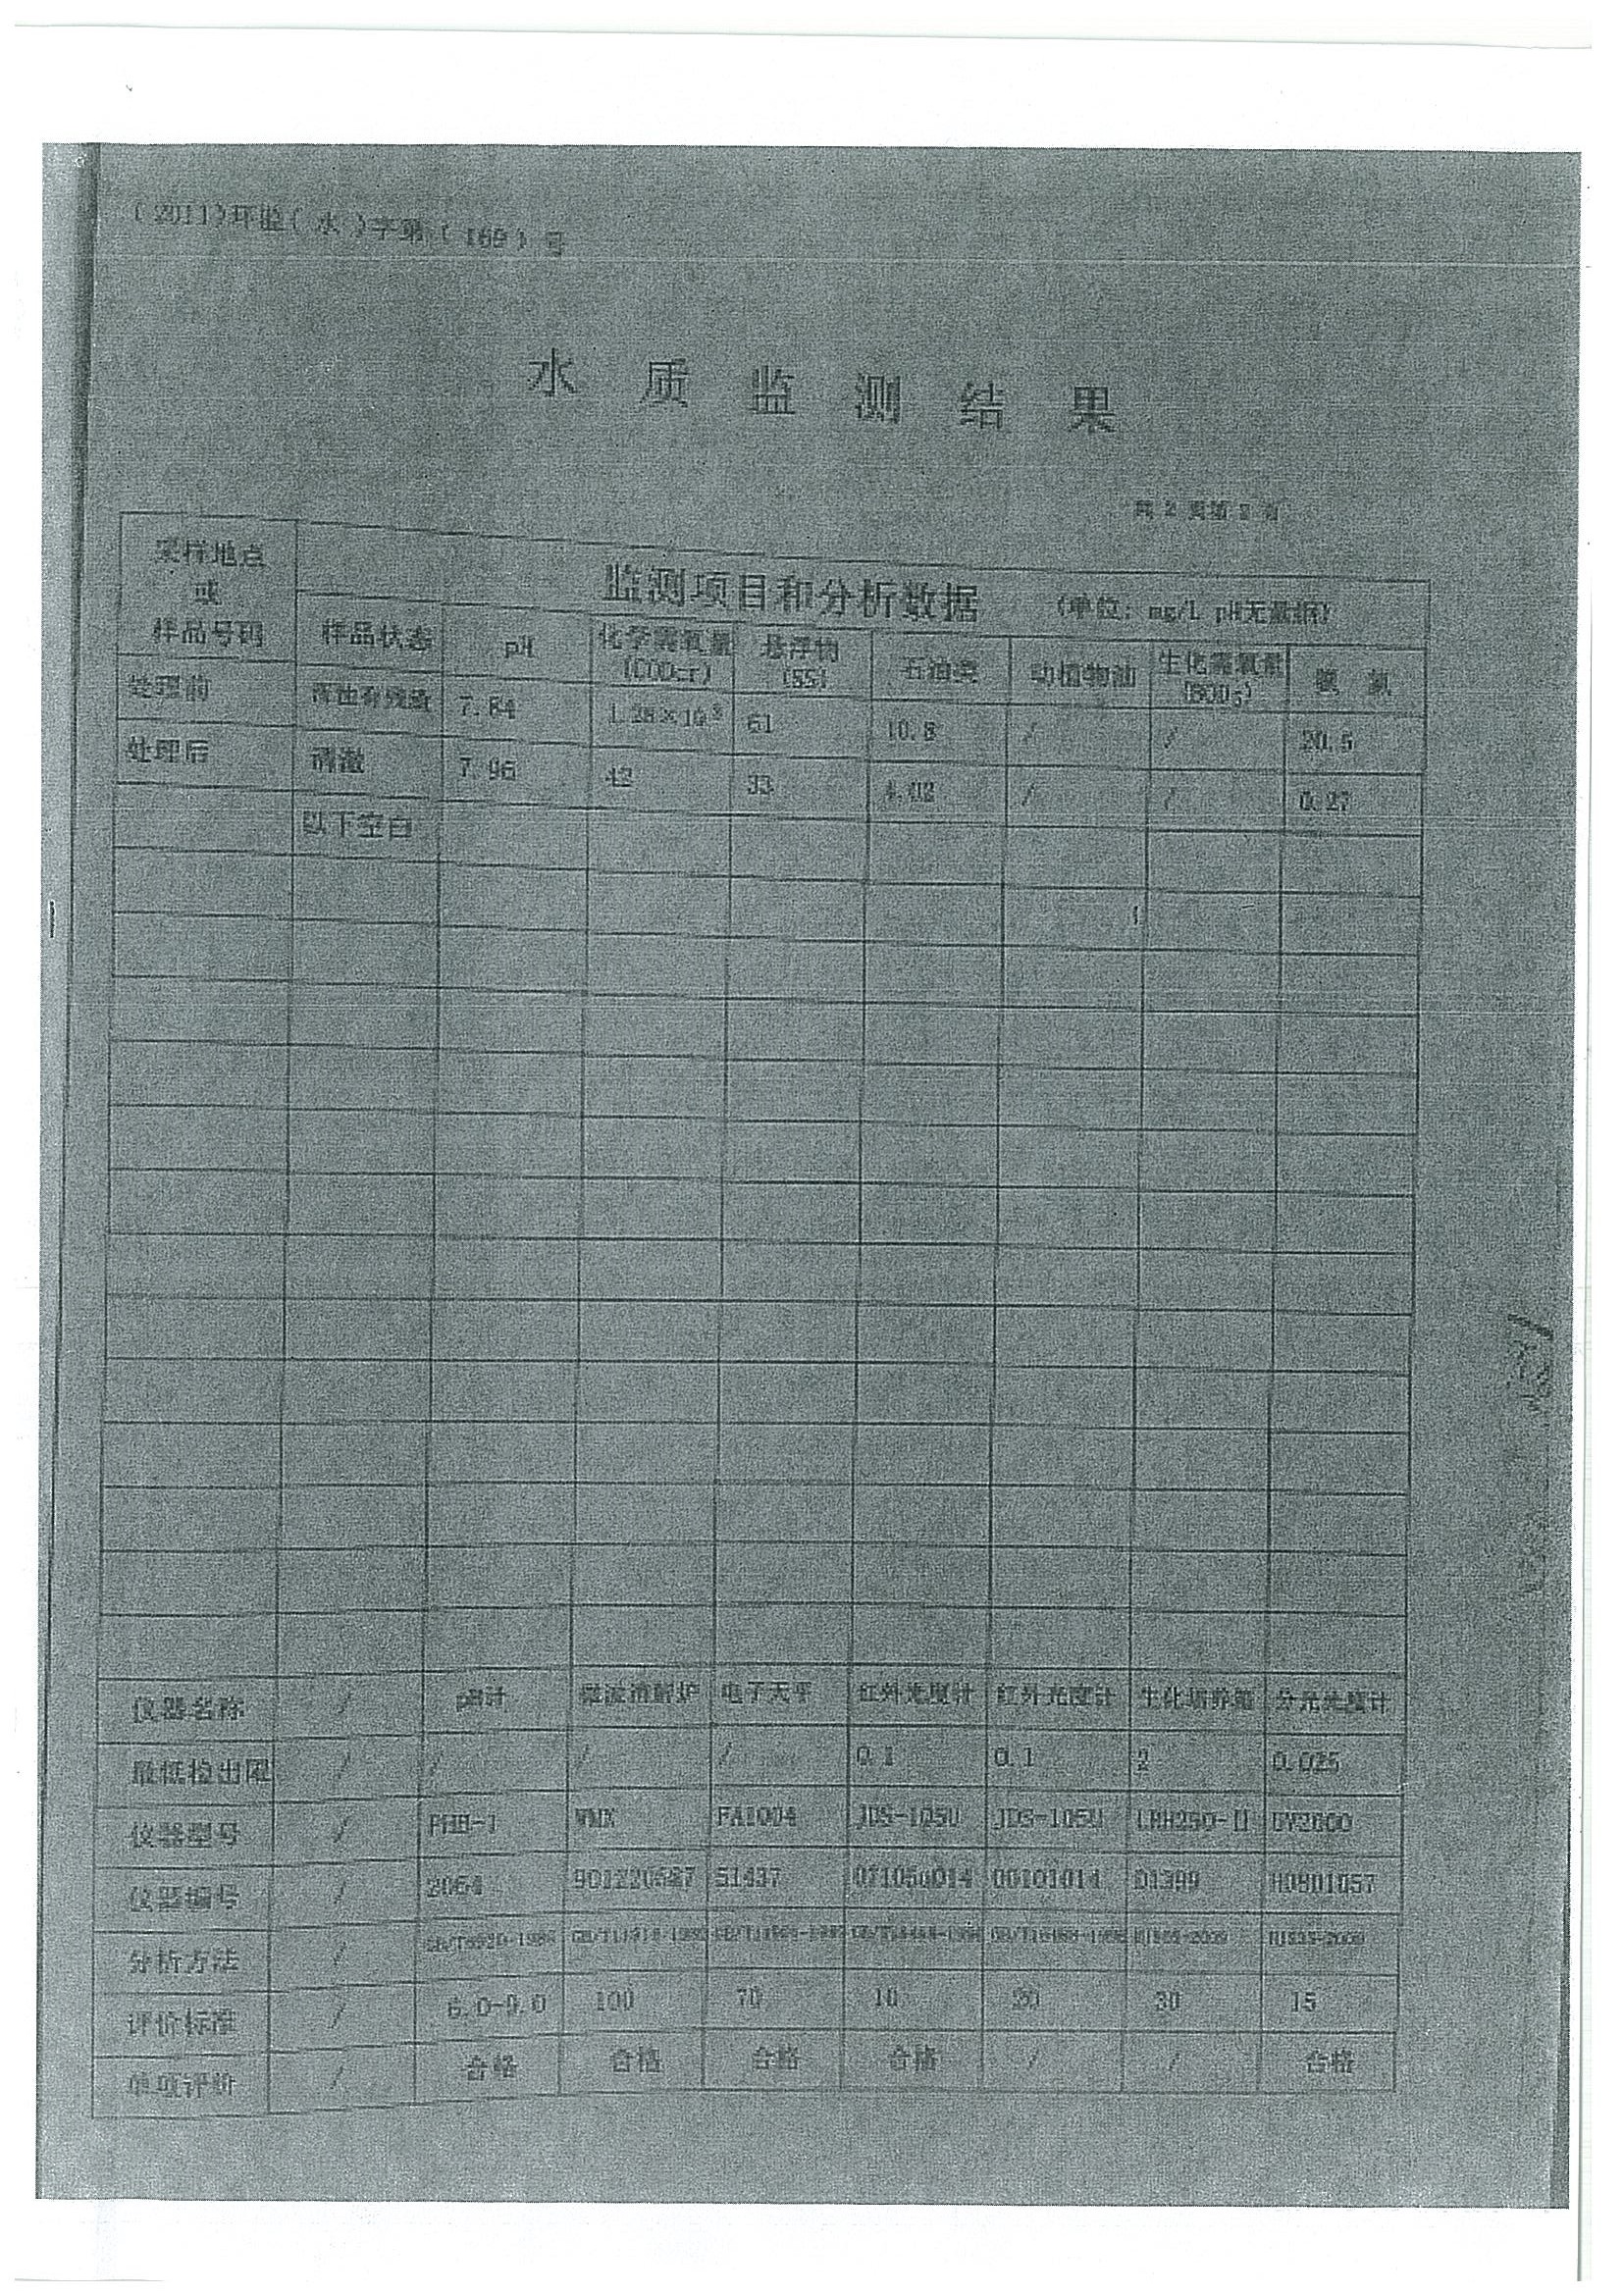 (2011)环监(水)字第(169)号
水 质 监 测 结 果
共 2 页第 2 页
采样地点
或
样品号码
监测项目和分析数据 (单位: mg/L pH无量纲)
样品状态 pH 化学需氧量(CODcr) 悬浮物(SS) 石油类 动植物油 生化需氧量(BOD5) 氨 氮
处理前 7.84 1.28×10³ 61 10.8 / / 20.5
处理后 清澈 7.96 42 33 4.02 / / 0.27
以下空白
仪器名称 / pH计 微波消解炉 电子天平 红外光度计 红外光度计 生化培养箱 分光光度计
最低检出限 / / / / 0.1 0.1 2 0.025
仪器型号 / PHB-1 WMX FA1004 JDS-105U JDS-105U LRH250-II UV2600
仪器编号 / 2064 S1437 00101014 D1399
分析方法 /
评价标准 / 6.0-9.0 100 70 10 20 30 15
单项评价 / 合格 合格 合格 合格 / / 合格